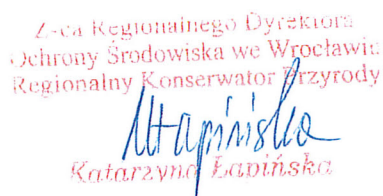 Z-ca Regionalnego Dyrektora
Ochrony Środowiska we Wrocławiu
Regionalny Konserwator Przyrody
Łapińska
Katarzyna Łapińska